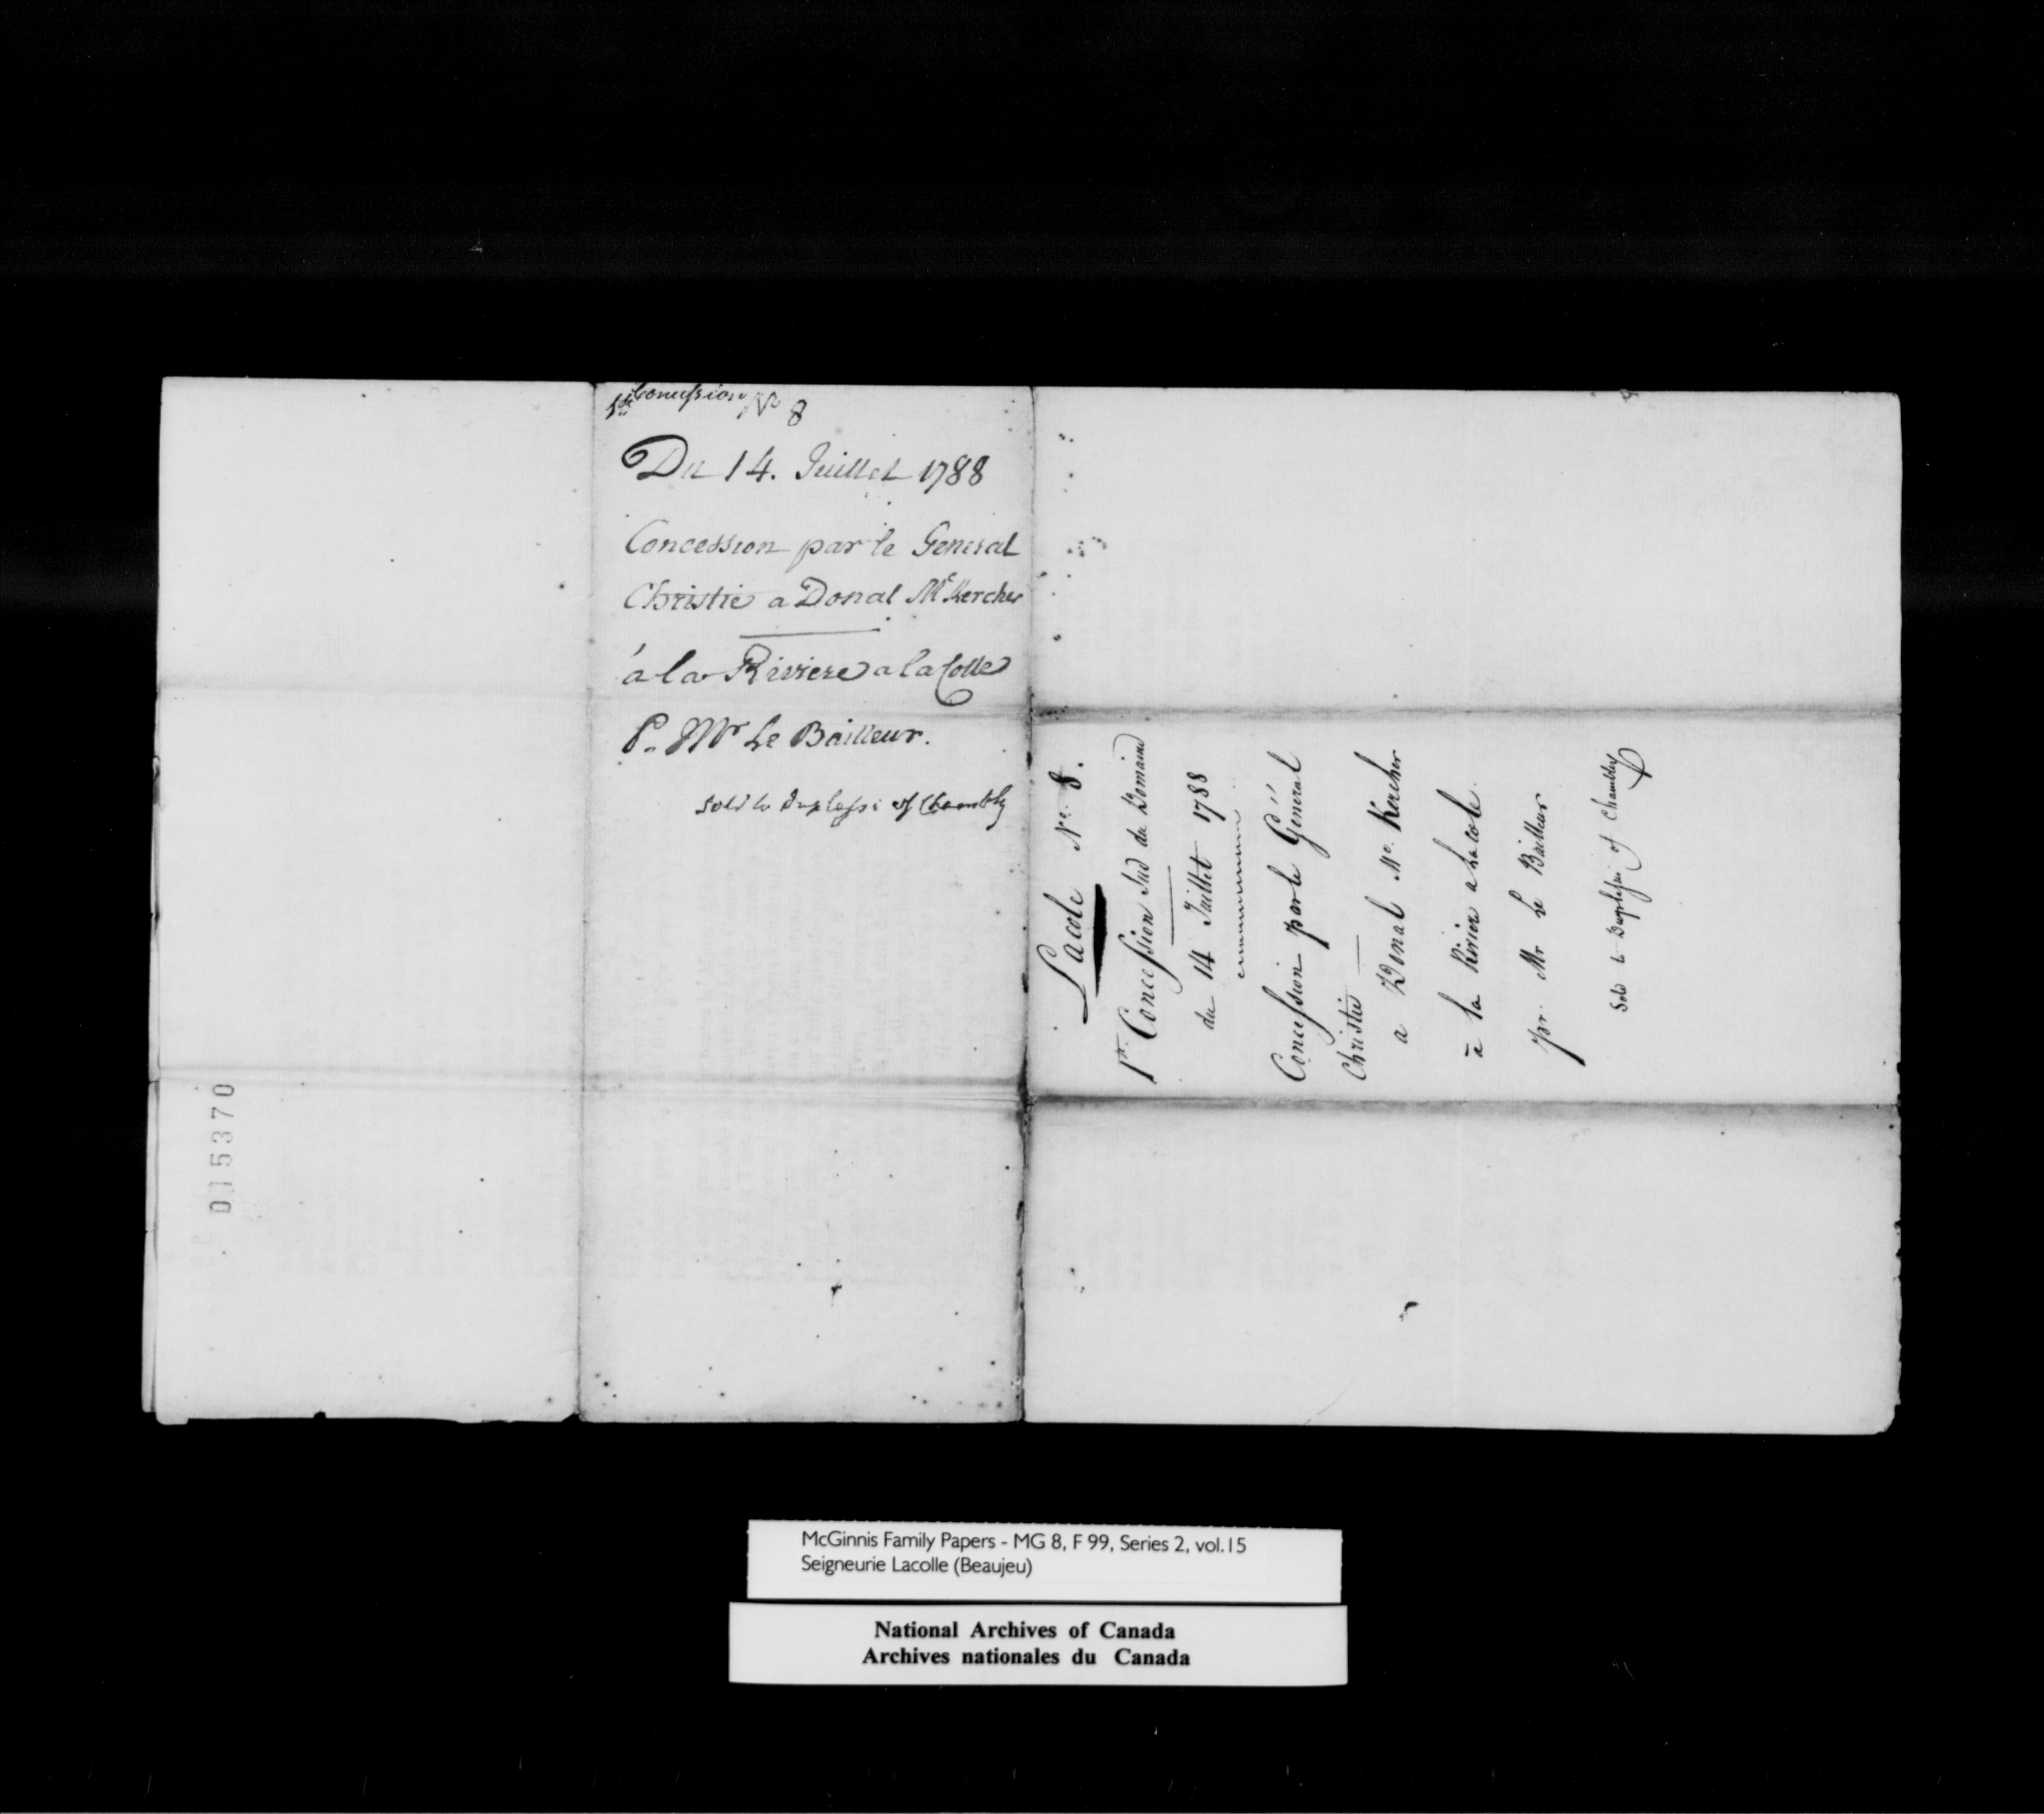 1re Concession No 8
Du 14. Juillet 1788
Concession par le General
Christie a Donal Mc Kercher
á la Riviere a la Colle
P. Mr Le Bailleur.
Sold to Duplessi of Chambly
Lacole No. 8.
1re Concession Sud du Domaine
du 14 Juillet 1788
Concession par le Général
Christie
a Donal Mc. Kercher
à la Riviere a Lacole.
pr. Mr Le Bailleur
Sold to Duplessi of Chambly
015370
McGinnis Family Papers - MG 8, F 99, Series 2, vol.15
Seigneurie Lacolle (Beaujeu)
National Archives of Canada
Archives nationales du Canada